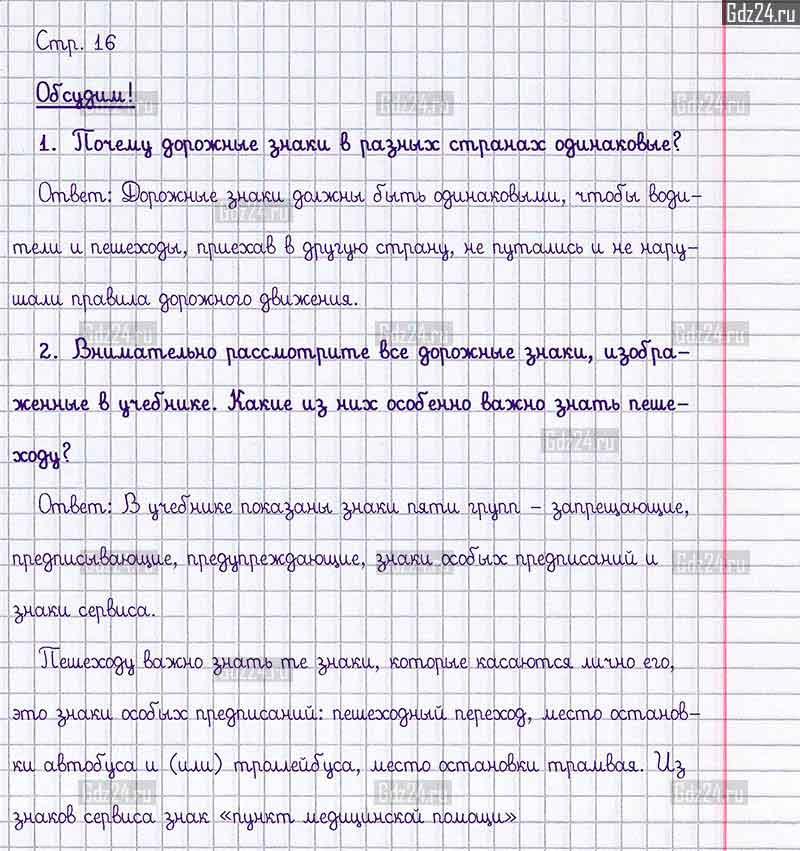 Gdz24.ru
Стр. 16
Обсудим!
1. Почему дорожные знаки в разных странах одинаковые?
Ответ: Дорожные знаки должны быть одинаковыми, чтобы води-
тели и пешеходы, приехав в другую страну, не путались и не нару-
шали правила дорожного движения.
2. Внимательно рассмотрите все дорожные знаки, изобра-
женные в учебнике. Какие из них особенно важно знать пеше-
ходу?
Ответ: В учебнике показаны знаки пяти групп – запрещающие,
предписывающие, предупреждающие, знаки особых предписаний и
знаки сервиса.
Пешеходу важно знать те знаки, которые касаются лично его,
это знаки особых предписаний: пешеходный переход, место останов-
ки автобуса и (или) троллейбуса, место остановки трамвая. Из
знаков сервиса знак «пункт медицинской помощи»